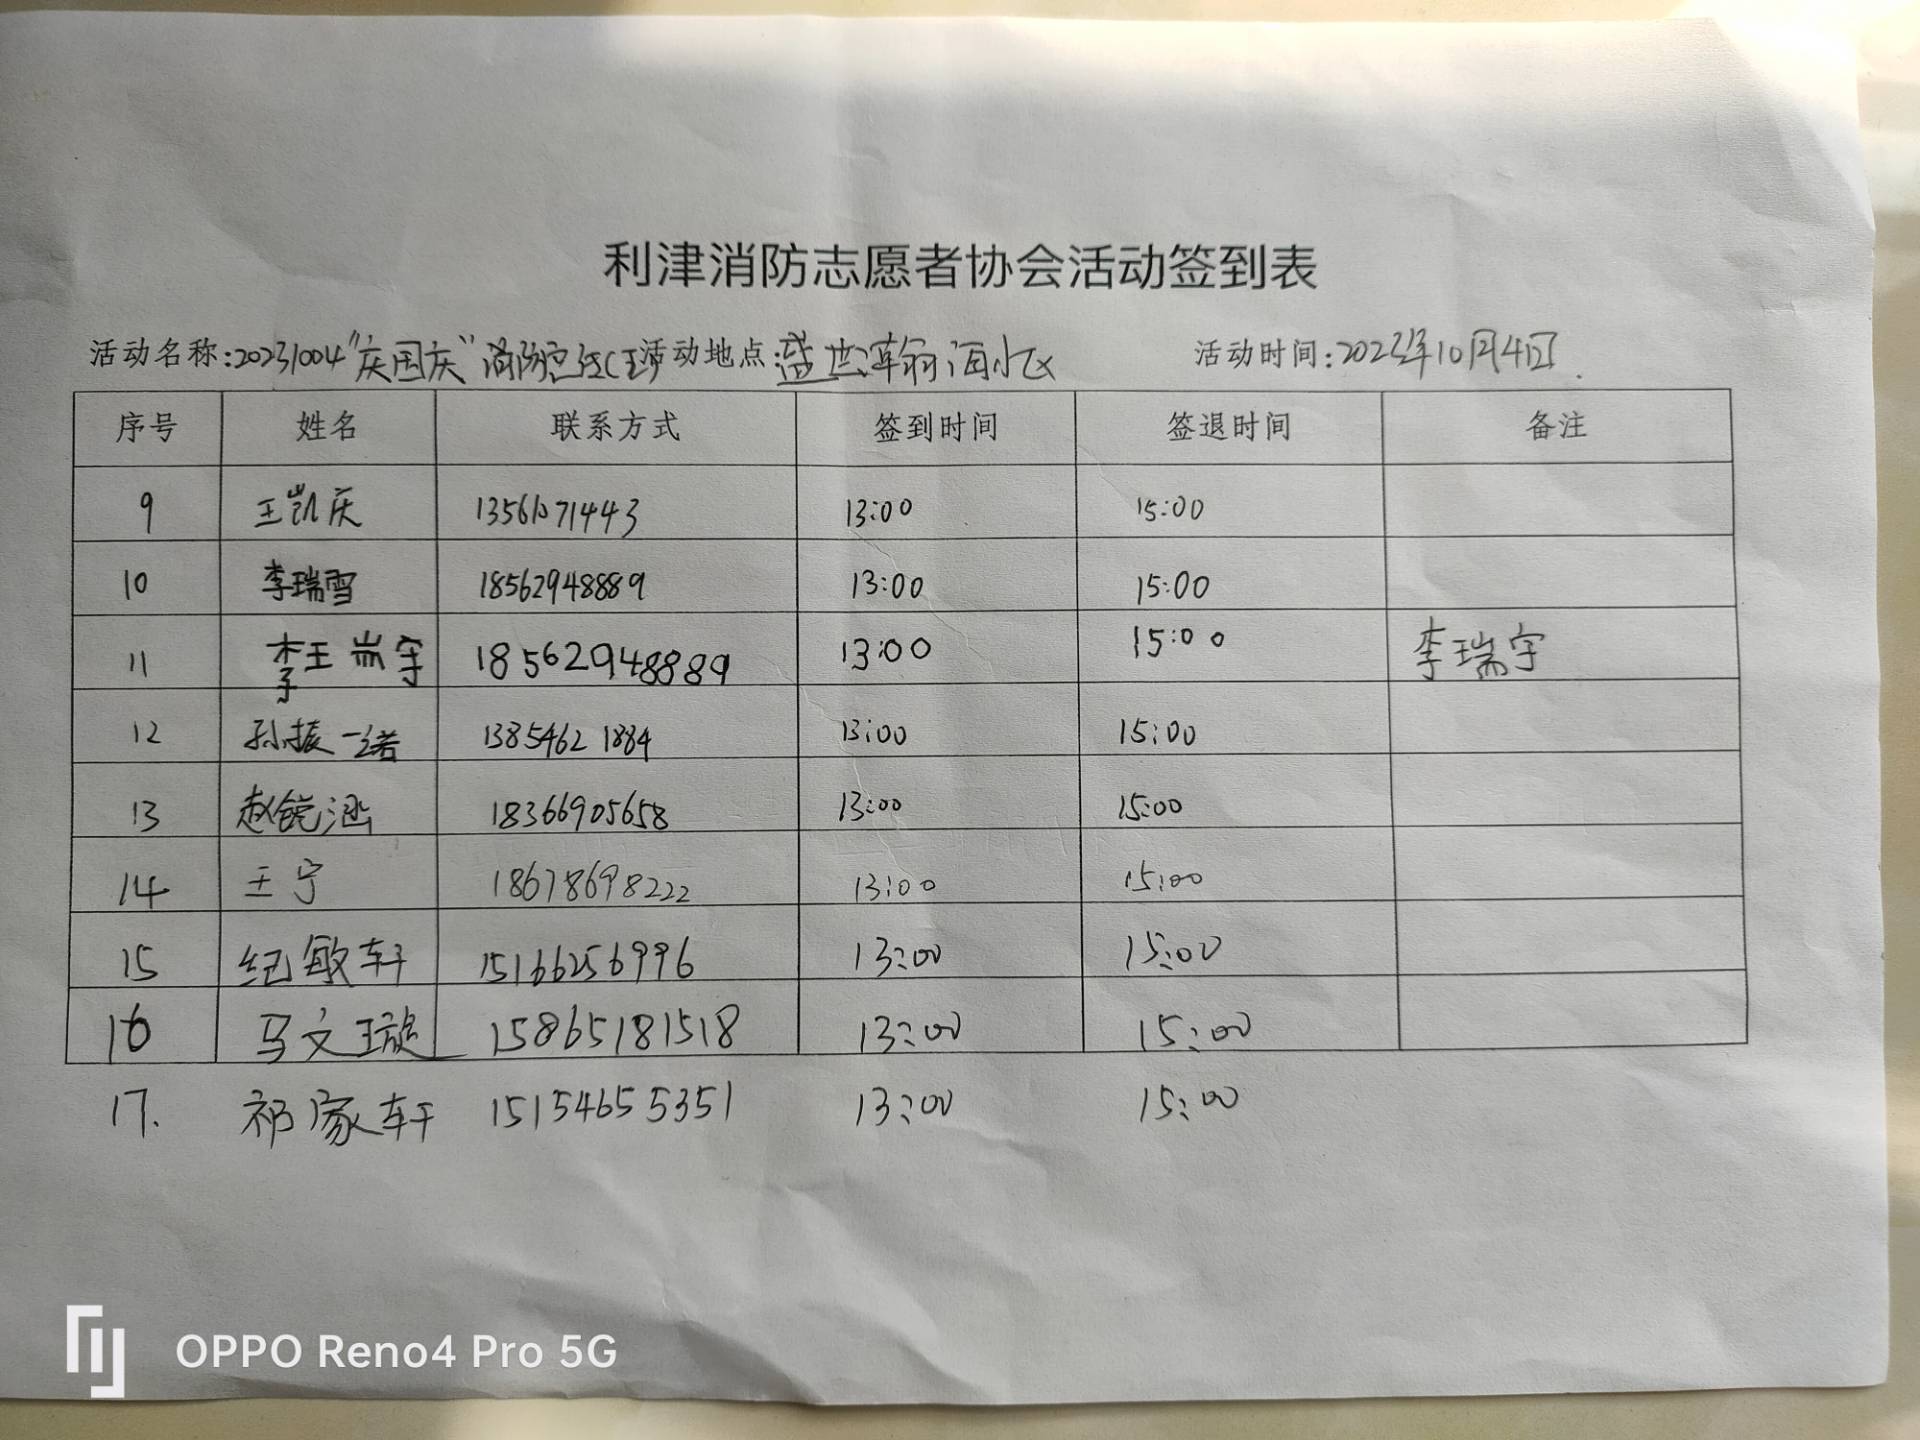 利津消防志愿者协会活动签到表
活动名称:20231004"庆国庆"消防宣传 活动地点:盛世瀚海小区 活动时间:2023年10月4日.
序号 姓名 联系方式 签到时间 签退时间 备注
9 王凯庆 13561071443 13:00 15:00
10 李瑞雪 18562948889 13:00 15:00
11 李瑞宇 18562948889 13:00 15:00 李瑞宇
12 孙振一诺 13854621884 13:00 15:00
13 赵锐涵 18366905658 13:00 15:00
14 王宁 18678698222 13:00 15:00
15 纪敏轩 15166256996 13:00 15:00
16 马文璇 15865181518 13:00 15:00
17. 祁家轩 15154655351 13:00 15:00
OPPO Reno4 Pro 5G